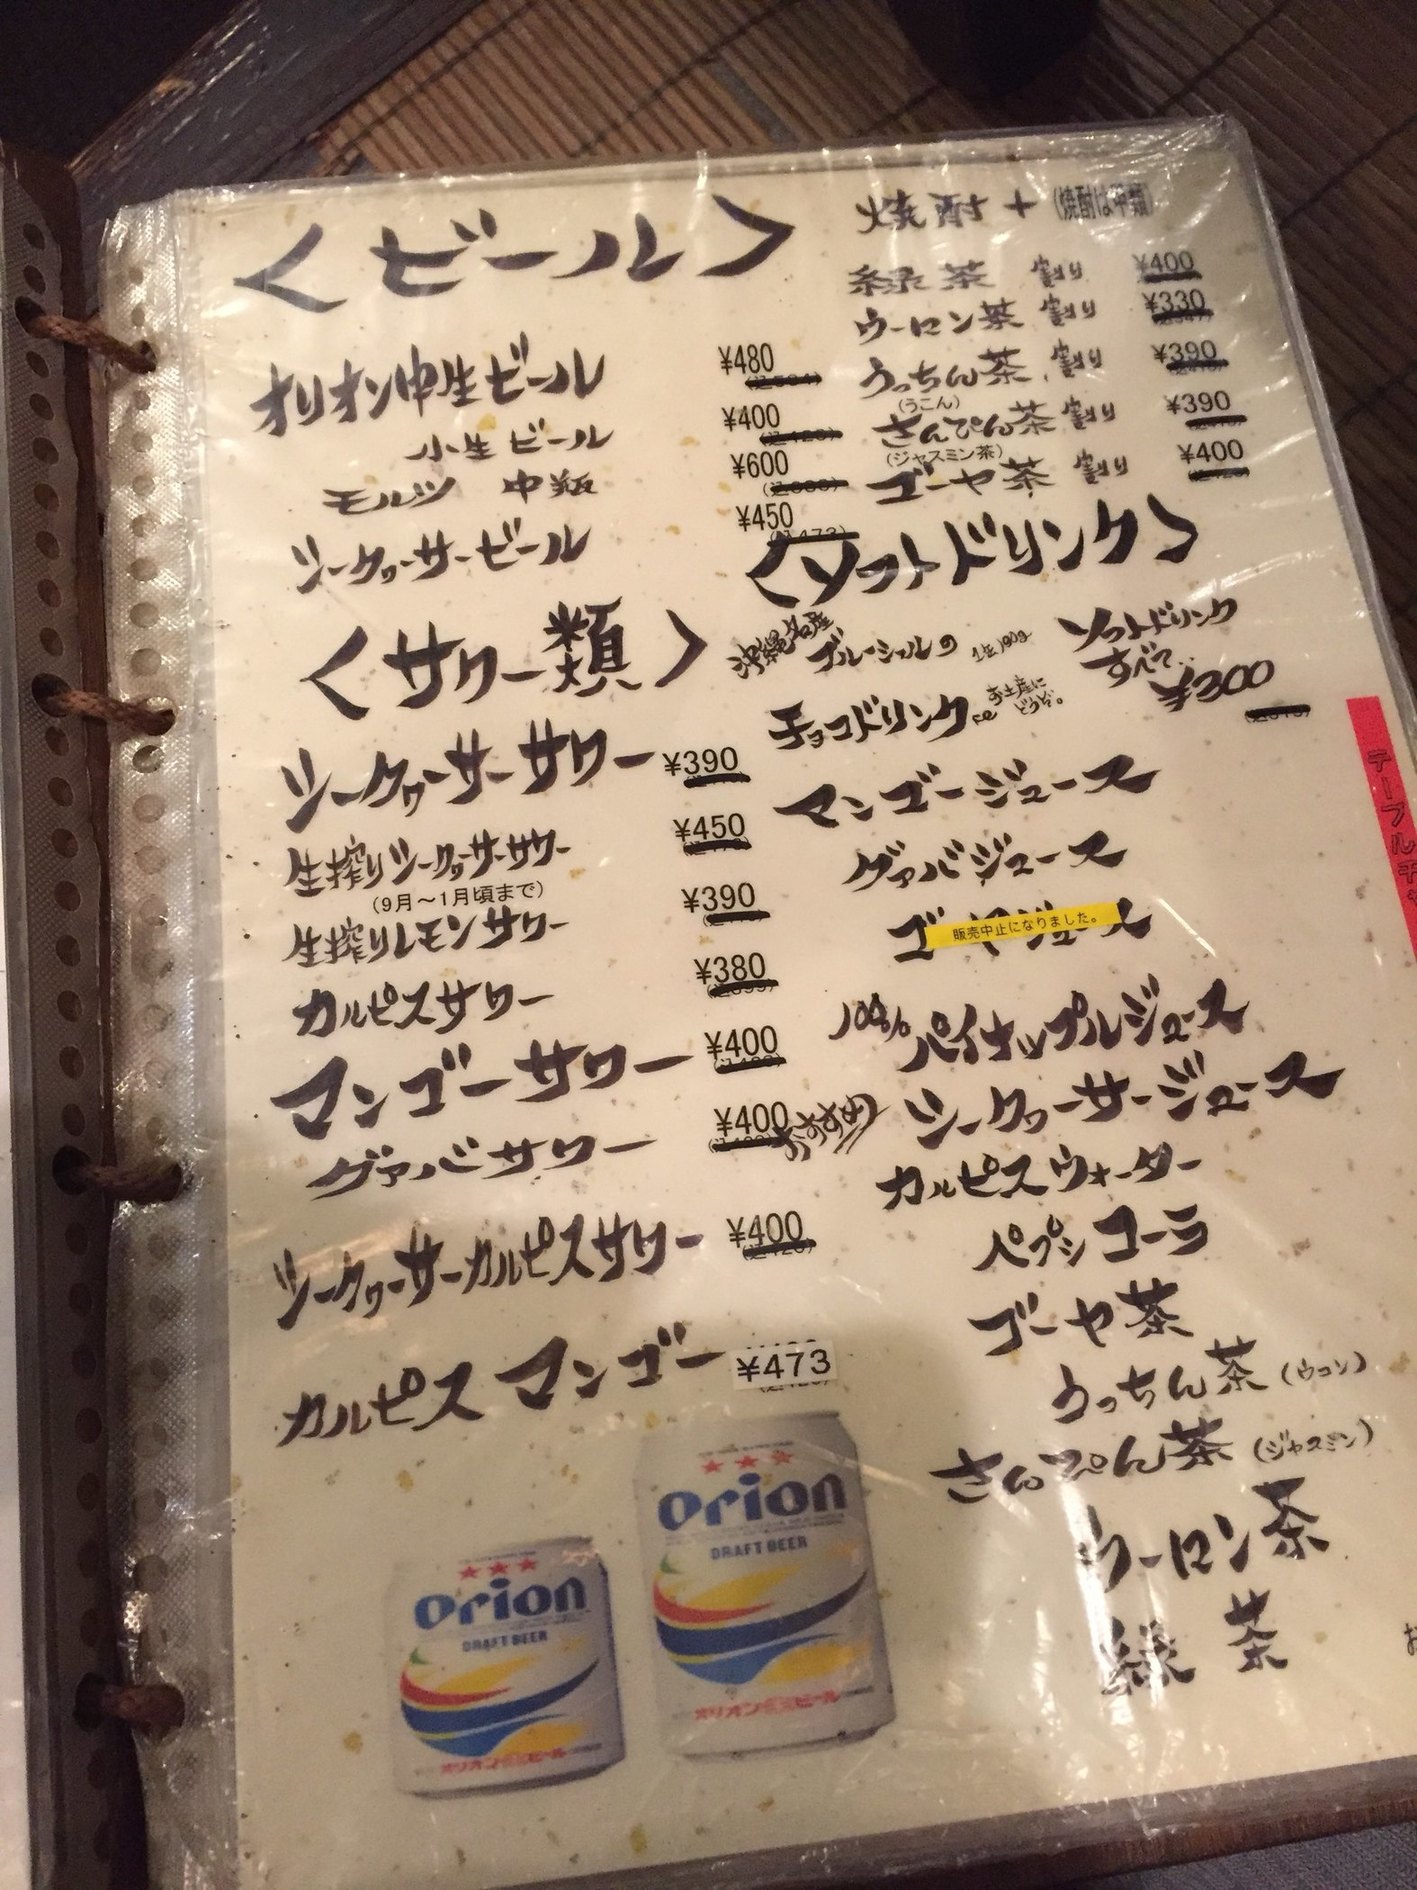 ＜ビール＞
オリオン中生ビール ¥480
小生ビール ¥400
モルツ 中瓶 ¥600
シークヮーサービール ¥450
＜サワー類＞
シークヮーサーサワー ¥390
生搾りシークヮーサーサワー ¥450
(9月～1月頃まで)
生搾りレモンサワー ¥390
カルピスサワー ¥380
マンゴーサワー ¥400
グァバサワー ¥400
シークヮーサーカルピスサワー ¥400
カルピスマンゴー ¥473
orion
DRAFT BEER
orion
DRAFT BEER
焼酎＋(焼酎は甲類)
緑茶 割り ¥400
ウーロン茶 割り ¥330
うっちん茶 割り ¥390
(うこん)
さんぴん茶 割り ¥390
(ジャスミン茶)
ゴーヤ茶 割り ¥400
＜ソフトドリンク＞
ソフトドリンク
すべて..
¥300
沖縄名産
ブルーシールの
チョコドリンク
お土産に
どうぞ。
マンゴージュース
グァバジュース
ゴーヤジュース
販売中止になりました。
100% パイナップルジュース
おすすめ シークヮーサージュース
カルピスウォーター
ペプシコーラ
ゴーヤ茶
うっちん茶(ウコン)
さんぴん茶(ジャスミン)
ウーロン茶
緑茶